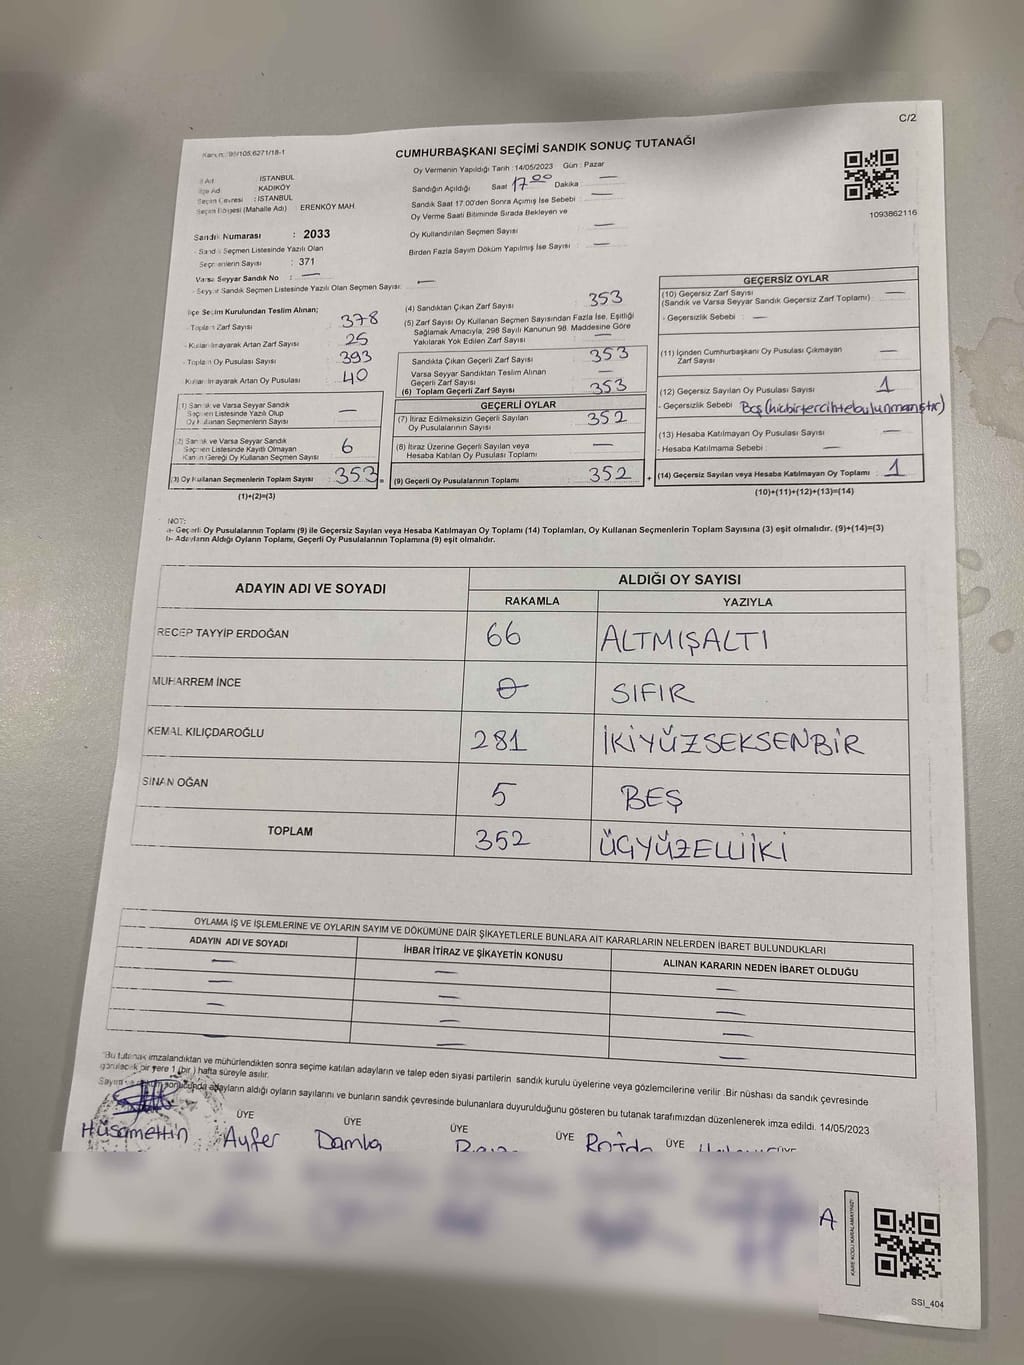 C/2
CUMHURBAŞKANI SEÇİMİ SANDIK SONUÇ TUTANAĞI
İl Adı : İSTANBUL
İlçe Adı : KADIKÖY
Seçim Çevresi : İSTANBUL
Seçim Bölgesi (Mahalle Adı) : ERENKÖY MAH.
Sandık Numarası : 2033
- Sandık Seçmen Listesinde Yazılı Olan
Seçmenlerin Sayısı : 371
Varsa Seyyar Sandık No : —
- Seyyar Sandık Seçmen Listesinde Yazılı Olan Seçmen Sayısı: —
Oy Vermenin Yapıldığı Tarih : 14/05/2023 Gün : Pazar
Sandığın Açıldığı Saat 17.00 Dakika —
Sandık Saat 17.00'den Sonra Açımış İse Sebebi —
Oy Verme Saati Bitiminde Sırada Bekleyen ve
Oy Kullandırılan Seçmen Sayısı —
Birden Fazla Sayım Döküm Yapılmış İse Sayısı —
1093862116
İlçe Seçim Kurulundan Teslim Alınan;
- Toplam Zarf Sayısı 378
- Kullanılmayarak Artan Zarf Sayısı 25
- Toplam Oy Pusulası Sayısı 393
Kullanılmayarak Artan Oy Pusulası 40
(1) Sandık ve Varsa Seyyar Sandık
Seçmen Listesinde Yazılı Olup
Oy Kullanan Seçmenlerin Sayısı —
(2) Sandık ve Varsa Seyyar Sandık
Seçmen Listesinde Kayıtlı Olmayan
Kanun Gereği Oy Kullanan Seçmen Sayısı 6
(3) Oy Kullanan Seçmenlerin Toplam Sayısı 353 =
(1)+(2)=(3)
(4) Sandıktan Çıkan Zarf Sayısı 353
(5) Zarf Sayısı Oy Kullanan Seçmen Sayısından Fazla İse, Eşitliği
Sağlamak Amacıyla, 298 Sayılı Kanunun 98. Maddesine Göre
Yakılarak Yok Edilen Zarf Sayısı —
Sandıkta Çıkan Geçerli Zarf Sayısı 353
Varsa Seyyar Sandıktan Teslim Alınan
Geçerli Zarf Sayısı —
(6) Toplam Geçerli Zarf Sayısı 353
GEÇERLİ OYLAR
(7) İtiraz Edilmeksizin Geçerli Sayılan
Oy Pusulalarının Sayısı 352
(8) İtiraz Üzerine Geçerli Sayılan veya
Hesaba Katılan Oy Pusulalarının Toplamı —
(9) Geçerli Oy Pusulalarının Toplamı 352 +
GEÇERSİZ OYLAR
(10) Geçersiz Zarf Sayısı
(Sandık ve Varsa Seyyar Sandık Geçersiz Zarf Toplamı) —
- Geçersizlik Sebebi : —
(11) İçinden Cumhurbaşkanı Oy Pusulası Çıkmayan
Zarf Sayısı —
(12) Geçersiz Sayılan Oy Pusulası Sayısı 1
- Geçersizlik Sebebi : Boş (hiçbir tercihte bulunmamıştır)
(13) Hesaba Katılmayan Oy Pusulası Sayısı —
- Hesaba Katılmama Sebebi : —
(14) Geçersiz Sayılan veya Hesaba Katılmayan Oy Toplamı : 1
(10)+(11)+(12)+(13)=(14)
NOT:
a- Geçerli Oy Pusulalarının Toplamı (9) ile Geçersiz Sayılan veya Hesaba Katılmayan Oy Toplamı (14) Toplamları, Oy Kullanan Seçmenlerin Toplam Sayısına (3) eşit olmalıdır. (9)+(14)=(3)
b- Adayların Aldığı Oyların Toplamı, Geçerli Oy Pusulalarının Toplamına (9) eşit olmalıdır.
ADAYIN ADI VE SOYADI ALDIĞI OY SAYISI
RAKAMLA YAZIYLA
RECEP TAYYİP ERDOĞAN 66 ALTMIŞALTI
MUHARREM İNCE 0 SIFIR
KEMAL KILIÇDAROĞLU 281 İKİYÜZSEKSENBİR
SİNAN OĞAN 5 BEŞ
TOPLAM 352 ÜÇYÜZELLİİKİ
OYLAMA İŞ VE İŞLEMLERİNE VE OYLARIN SAYIM VE DÖKÜMÜNE DAİR ŞİKAYETLERLE BUNLARA AİT KARARLARIN NELERDEN İBARET BULUNDUKLARI
ADAYIN ADI VE SOYADI İHBAR İTİRAZ VE ŞİKAYETİN KONUSU ALINAN KARARIN NEDEN İBARET OLDUĞU
— — —
— — —
— — —
— — —
"Bu tutanak imzalandıktan ve mühürlendikten sonra seçime katılan adayların ve talep eden siyasi partilerin sandık kurulu üyelerine veya gözlemcilerine verilir. Bir nüshası da sandık çevresinde
görülecek bir yere 1 (bir) hafta süreyle asılır.
Sayım ve sonucunda adayların aldığı oyların sayılarını ve bunların sandık çevresinde bulunanlara duyurulduğunu gösteren bu tutanak tarafımızdan düzenlenerek imza edildi. 14/05/2023
ÜYE ÜYE ÜYE ÜYE ÜYE ÜYE
Hüsamettin Ayfer Damla
A
KARE KODU KARALAMAYINIZ
SSI_404